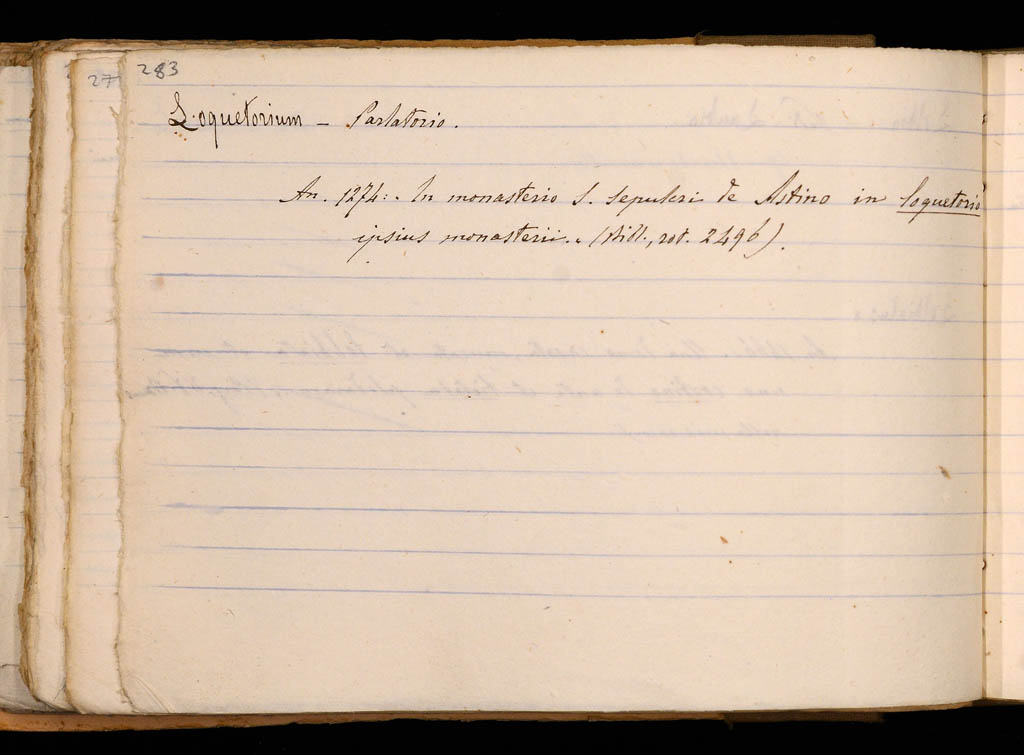 283
27
Loquetorium - Parlatorio.
An. 1274: In monasterio S. Sepulcri de Astino in loquetorio
ipsius monasterii. (Bibl., rot. 2496).